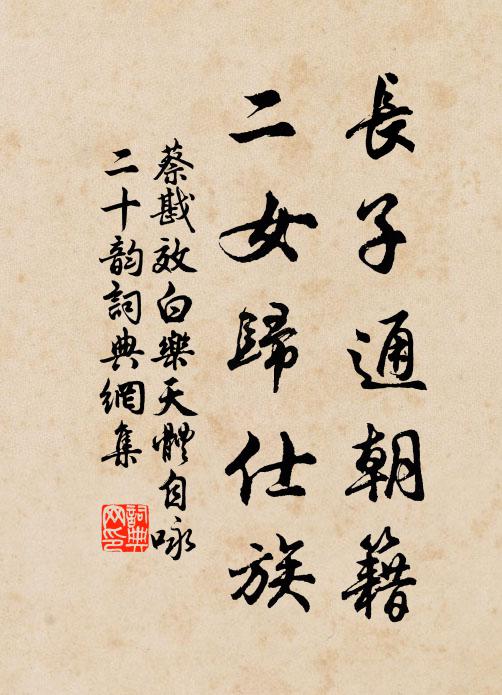 長子通朝籍
二女歸仕族
蔡戡效白樂天體自咏
二十韵詞典網集
詞典网印